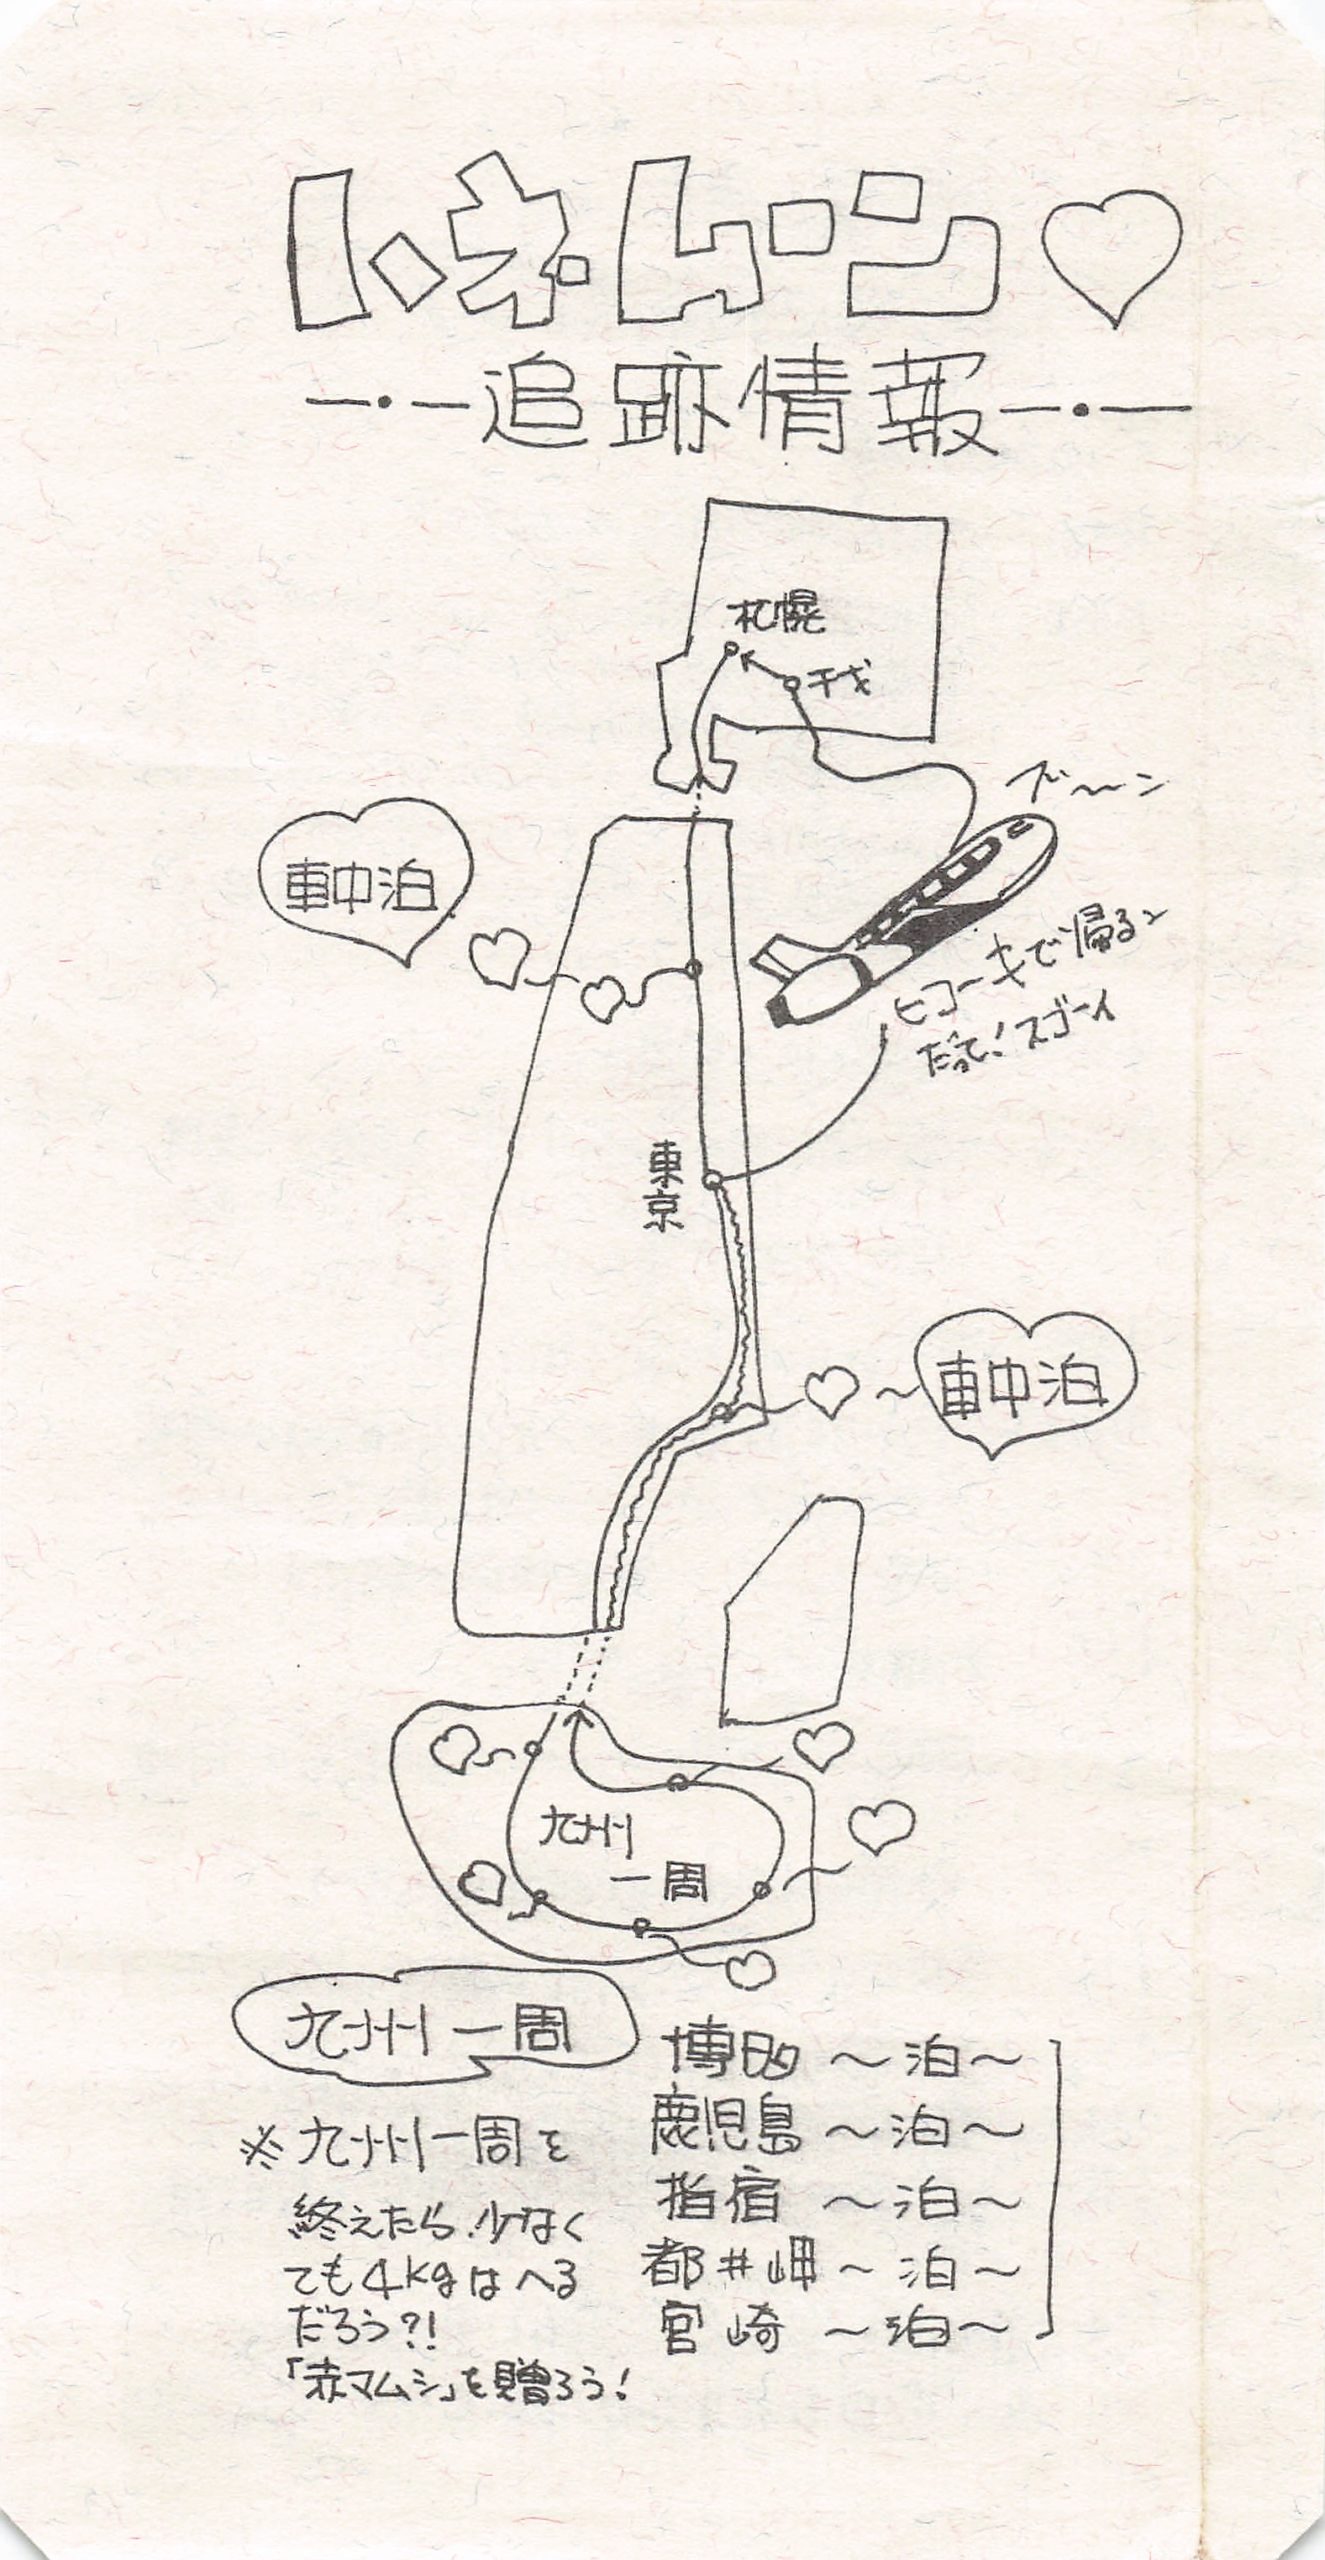 トネムーン♡
—・—追跡情報—・—
札幌
千才
ズ〜ン
車中泊
ヒコーキで帰るン
だって!スゴーイ
東京
〜車中泊
九州
一周
九州一周
博多 〜泊〜
鹿児島 〜泊〜
指宿 〜泊〜
都井岬 〜泊〜
宮崎 〜泊〜
※九州一周を
終えたら、少なく
ても4kgはへる
だろう?!
「赤マムシ」を贈ろう!